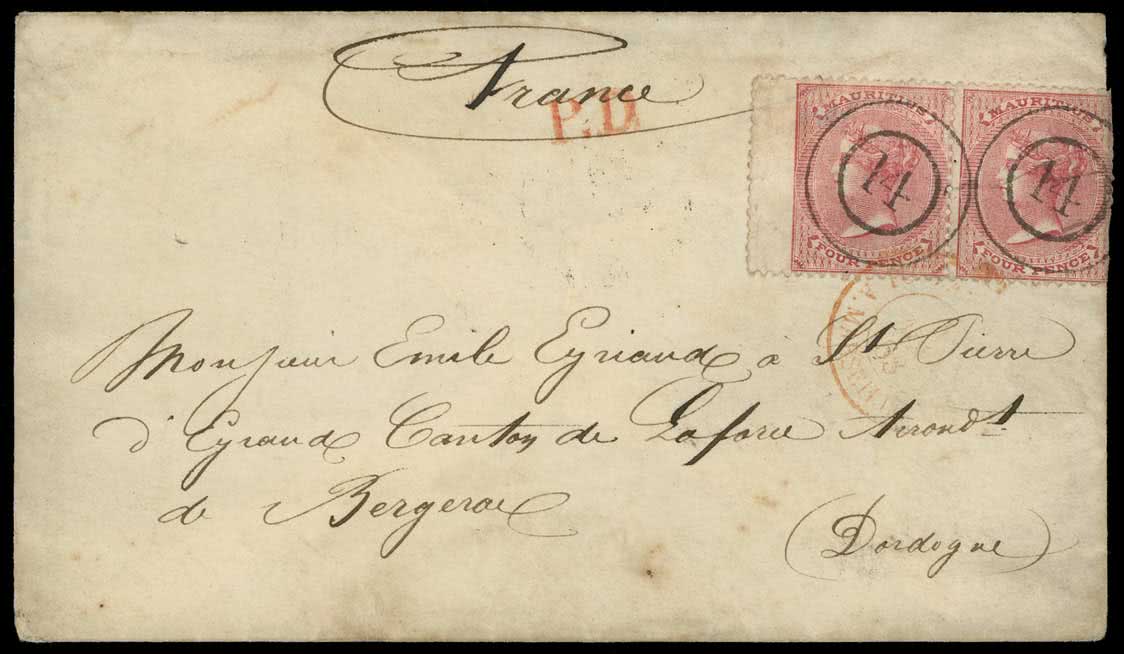 France
P.D.
MAURITIUS MAURITIUS
14 14
FOUR PENCE FOUR PENCE
Monsieur Emile Eyriaud à St Pierre
d'Eyraud Canton de Laforce Arrondt
de Bergerac
(Dordogne)